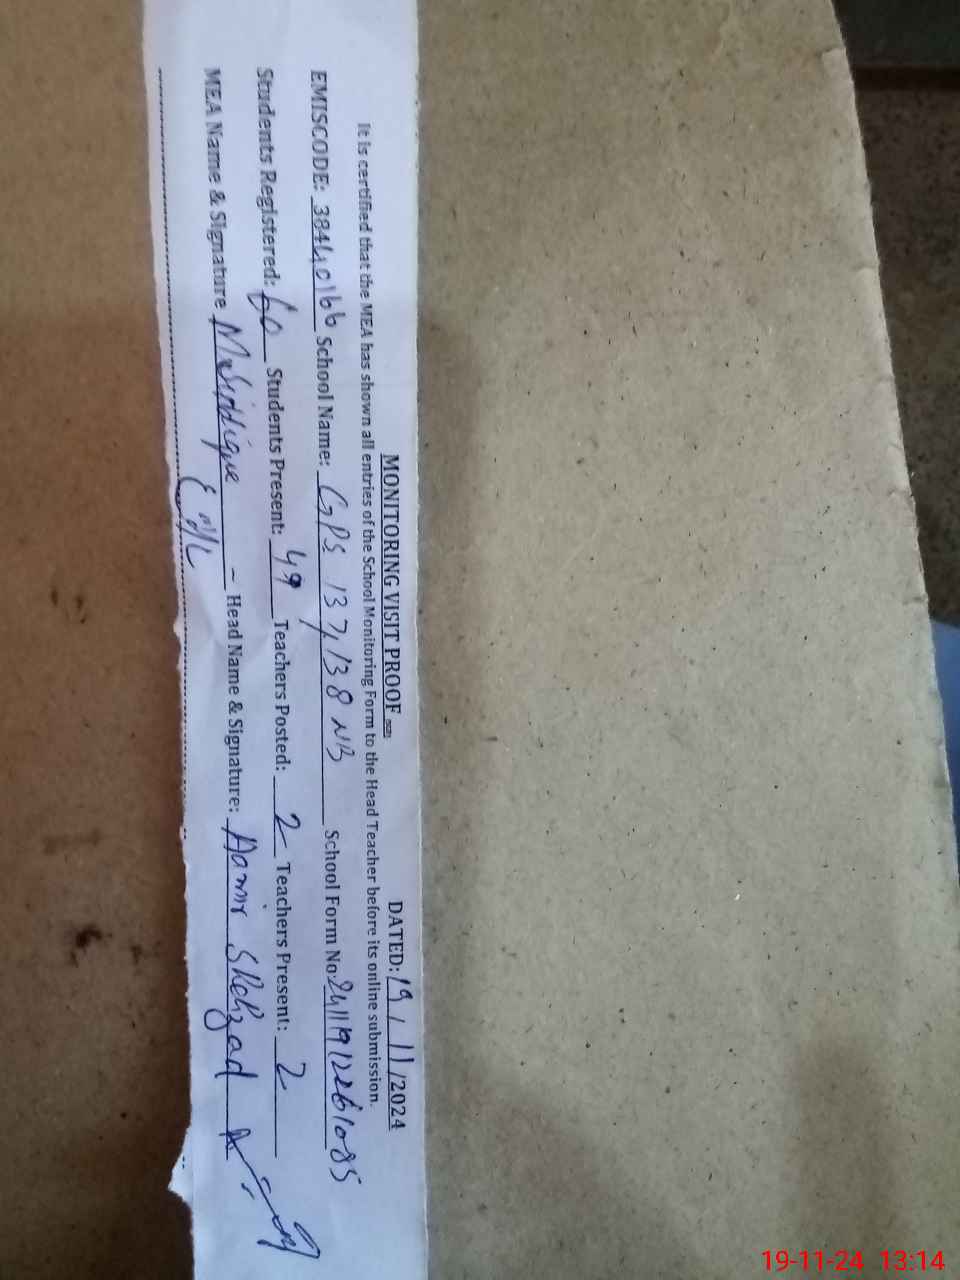 MONITORING VISIT PROOF DATED: 19/11/2024
It is certified that the MEA has shown all entries of the School Monitoring Form to the Head Teacher before its online submission.
EMISCODE: 38440166 School Name: GPS 137,138 NB School Form No: 24111912261085
Students Registered: 60 Students Present: 49 Teachers Posted: 2 Teachers Present: 2
MEA Name & Signature M.Siddique - Head Name & Signature: Aamir Shehzad
19-11-24 13:14